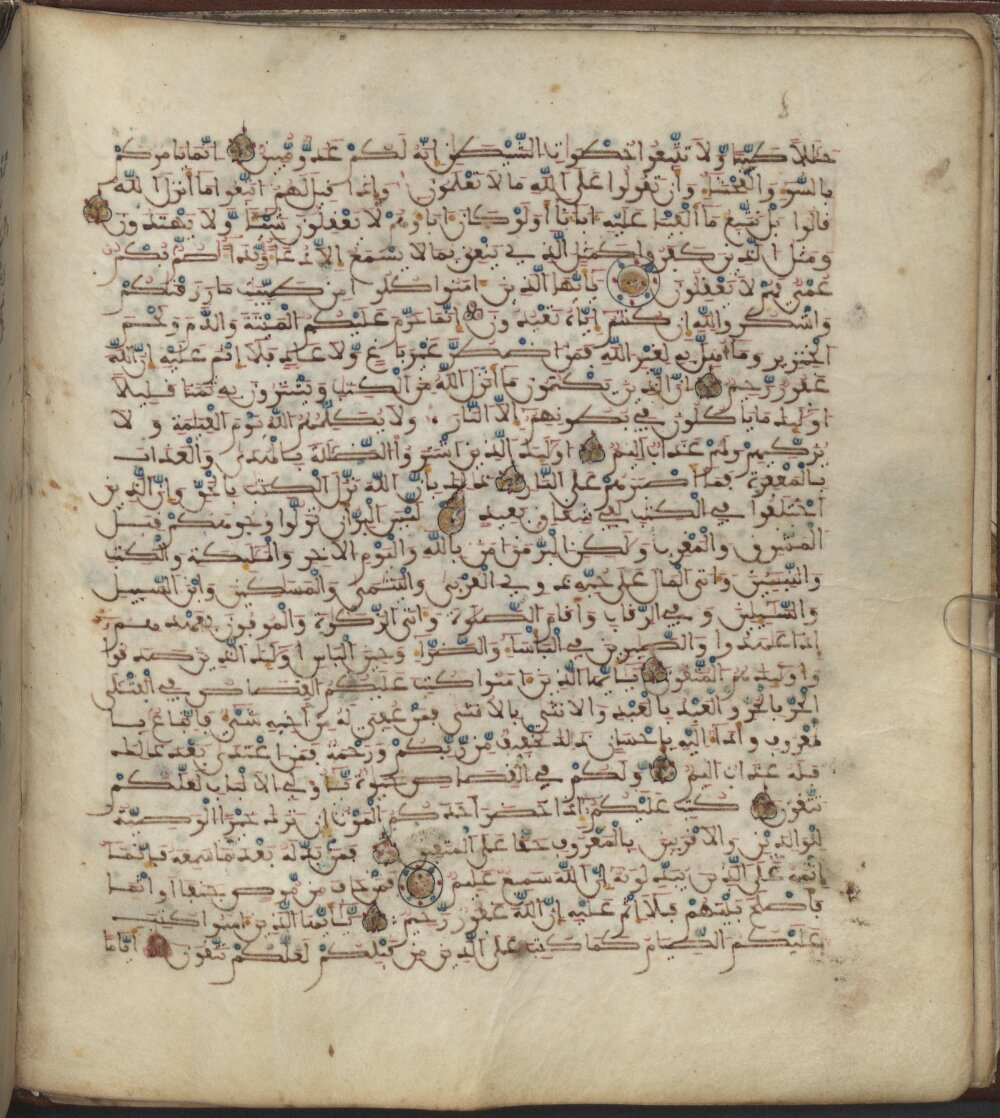 حللا طيبا ولا تتبعوا خطوات الشيطن انه لكم عدو مبين انما يامركم
بالسوء والفحشاء وان تقولوا على الله ما لا تعلمون واذا قيل لهم اتبعوا ما انزل الله
قالوا بل نتبع ما الفينا عليه اباءنا اولو كان اباؤهم لا يعقلون شيئا ولا يهتدون
ومثل الذين كفروا كمثل الذي ينعق بما لا يسمع الا دعاء ونداء صم بكم
عمي فهم لا يعقلون يايها الذين امنوا كلوا من طيبت ما رزقنكم
واشكروا لله ان كنتم اياه تعبدون انما حرم عليكم الميتة والدم ولحم
الخنزير وما اهل به لغير الله فمن اضطر غير باغ ولا عاد فلا اثم عليه ان الله
غفور رحيم ان الذين يكتمون ما انزل الله من الكتب ويشترون به ثمنا قليلا
اوليك ما ياكلون في بطونهم الا النار ولا يكلمهم الله يوم القيمة ولا
يزكيهم ولهم عذاب اليم اوليك الذين اشتروا الضللة بالهدى والعذاب
بالمغفرة فما اصبرهم على النار ذلك بان الله نزل الكتب بالحق وان الذين
اختلفوا في الكتب لفي شقاق بعيد ليس البر ان تولوا وجوهكم قبل
المشرق والمغرب ولكن البر من امن بالله واليوم الاخر والمليكة والكتب
والنبيين واتى المال على حبه ذوي القربى واليتمى والمسكين وابن السبيل
والسايلين وفي الرقاب واقام الصلوة واتى الزكوة والموفون بعهدهم
اذا عهدوا والصبرين في الباساء والضراء وحين الباس اوليك الذين صدقوا
واوليك هم المتقون يايها الذين امنوا كتب عليكم القصاص في القتلى
الحر بالحر والعبد بالعبد والانثى بالانثى فمن عفي له من اخيه شيء فاتباع با
لمعروف واداء اليه باحسن ذلك تخفيف من ربكم ورحمة فمن اعتدى بعد ذلك
فله عذاب اليم ولكم في القصاص حيوة ياولي الالباب لعلكم
تتقون كتب عليكم اذا حضر احدكم الموت ان ترك خيرا الوصية
للوالدين والاقربين بالمعروف حقا على المتقين فمن بدله بعد ما سمعه فانما
اثمه على الذين يبدلونه ان الله سميع عليم فمن خاف من موص جنفا او اثما
فاصلح بينهم فلا اثم عليه ان الله غفور رحيم يايها الذين امنوا كتب
عليكم الصيام كما كتب على الذين من قبلكم لعلكم تتقون اياما